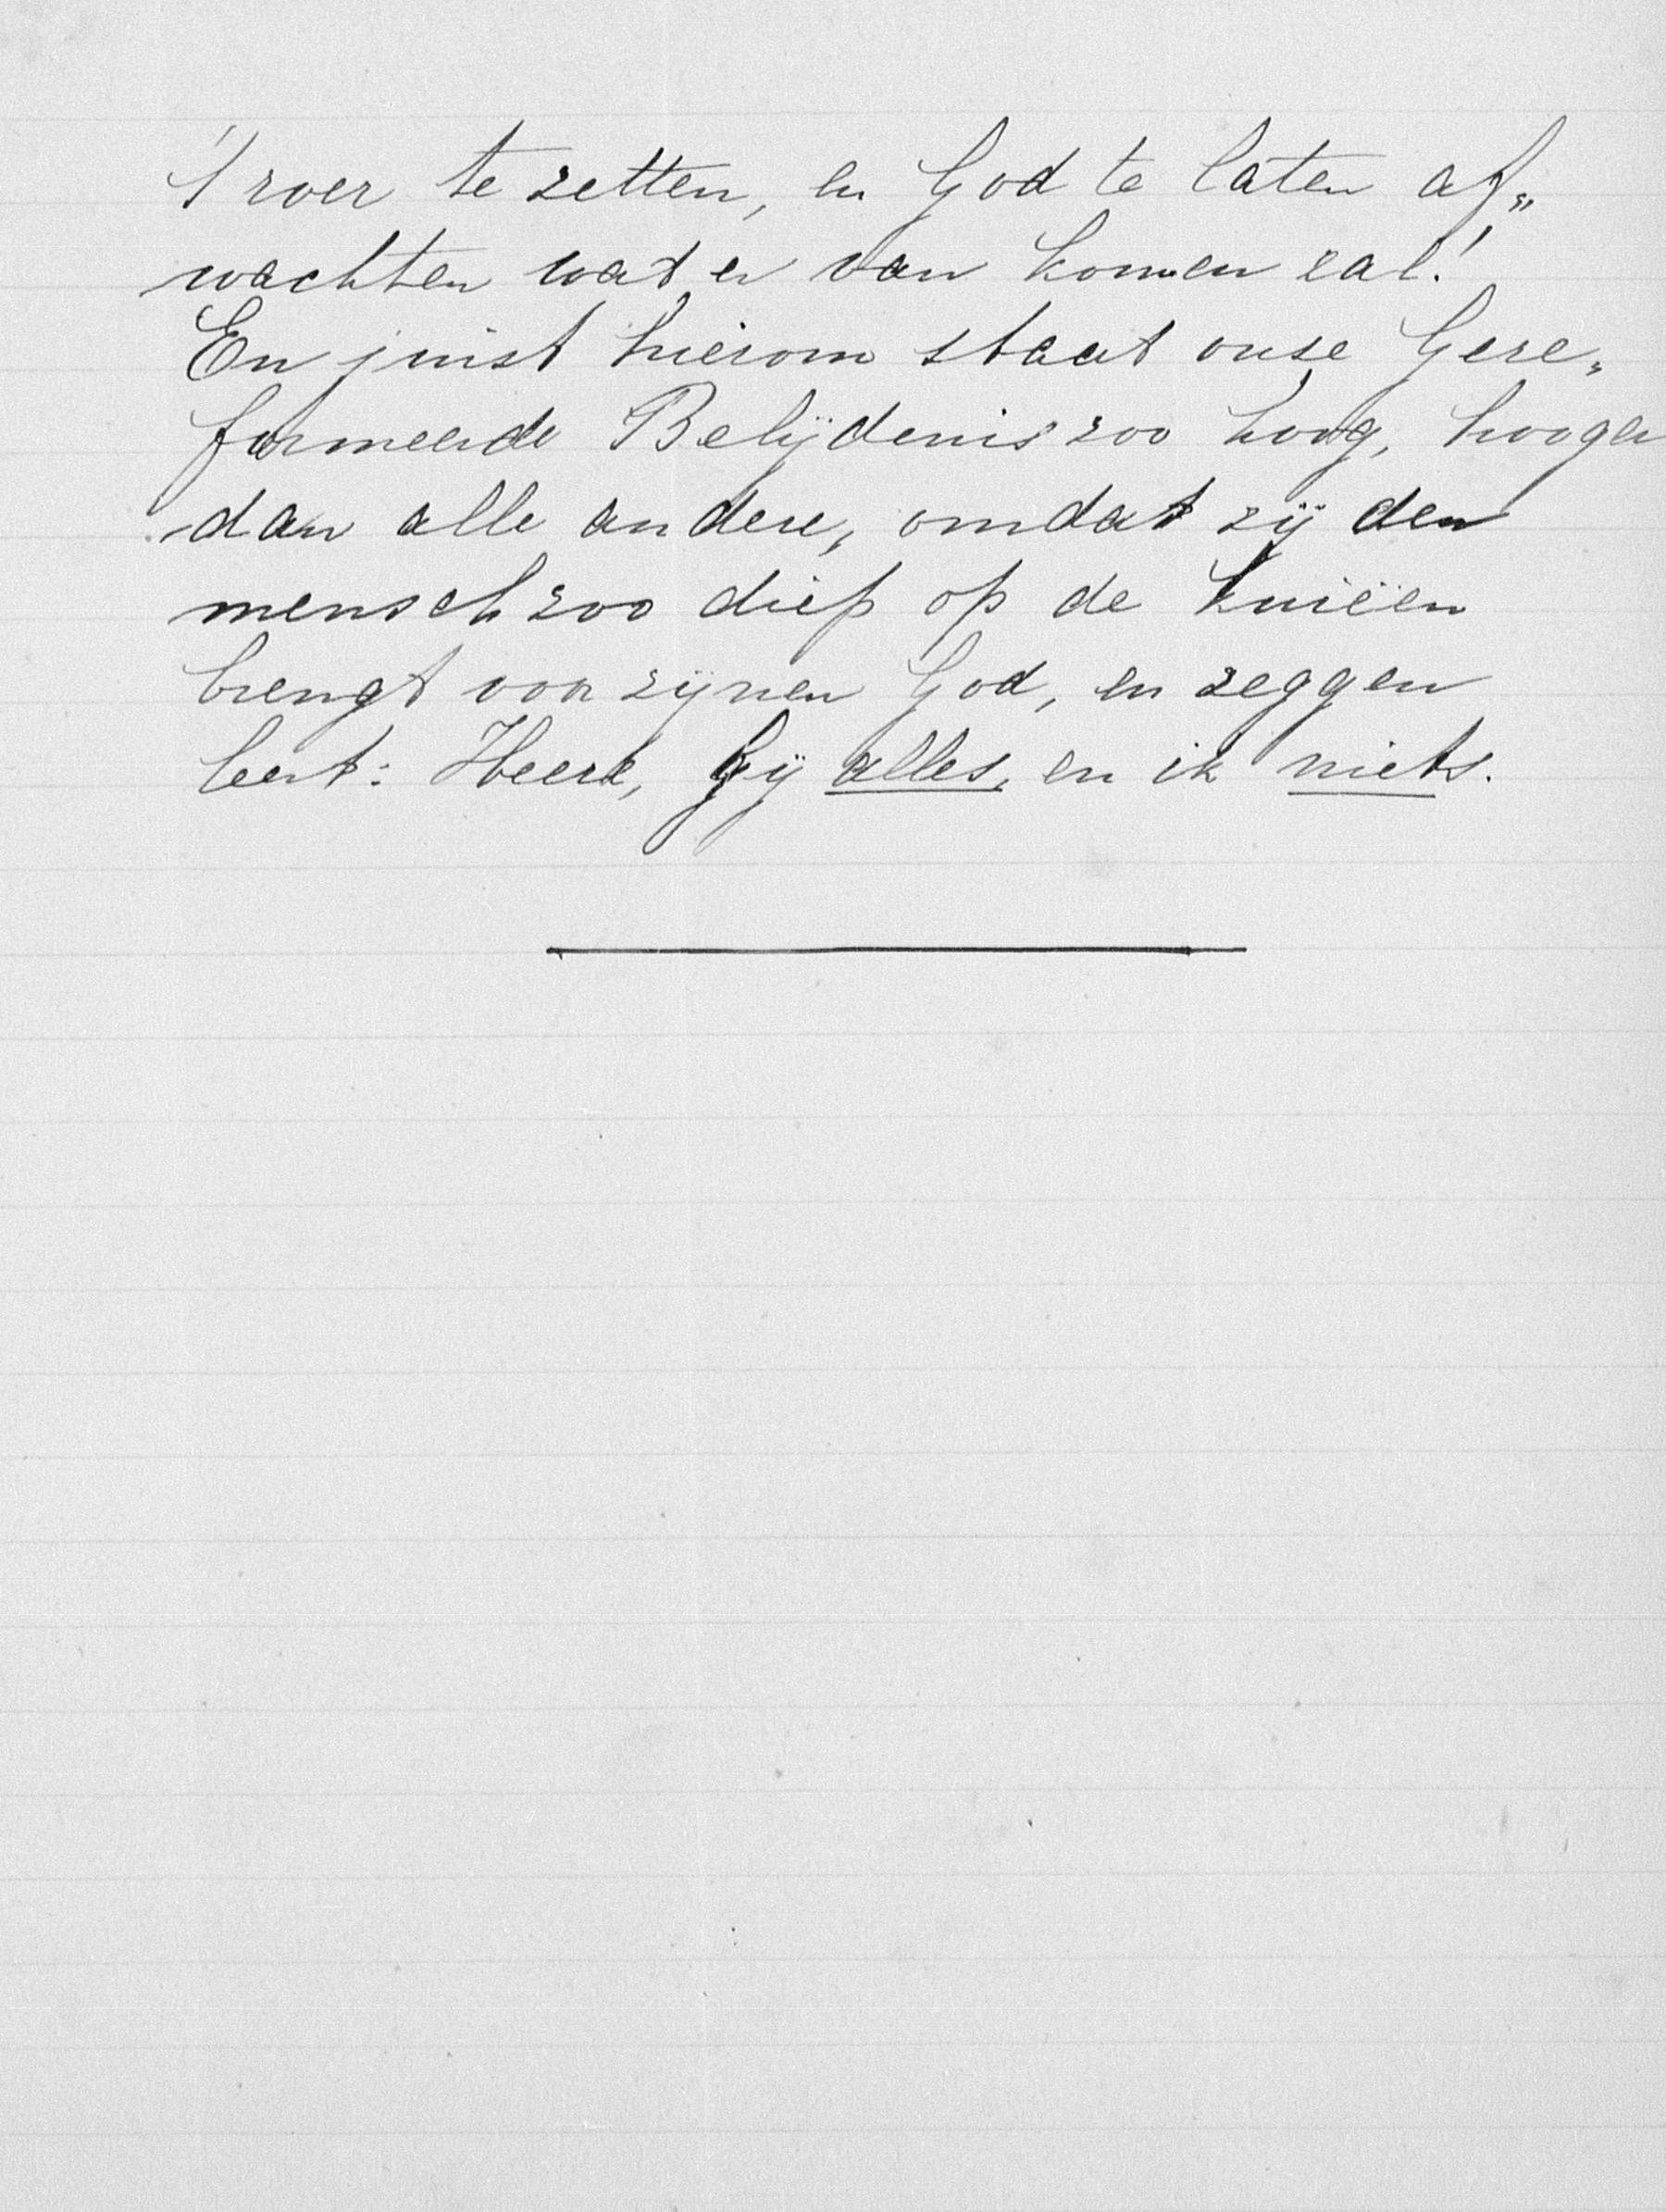 't roer te zetten, en God te laten af„
wachten wat er van komen zal!
En juist hierom staat onze Gere„
formeerde Belijdenis zoo hoog, hooger
dan alle andere, omdat zij den
mensch zoo diep op de knieën
brengt voor zijnen God, en zeggen
leert: Heere, Gij alles, en ik niets.